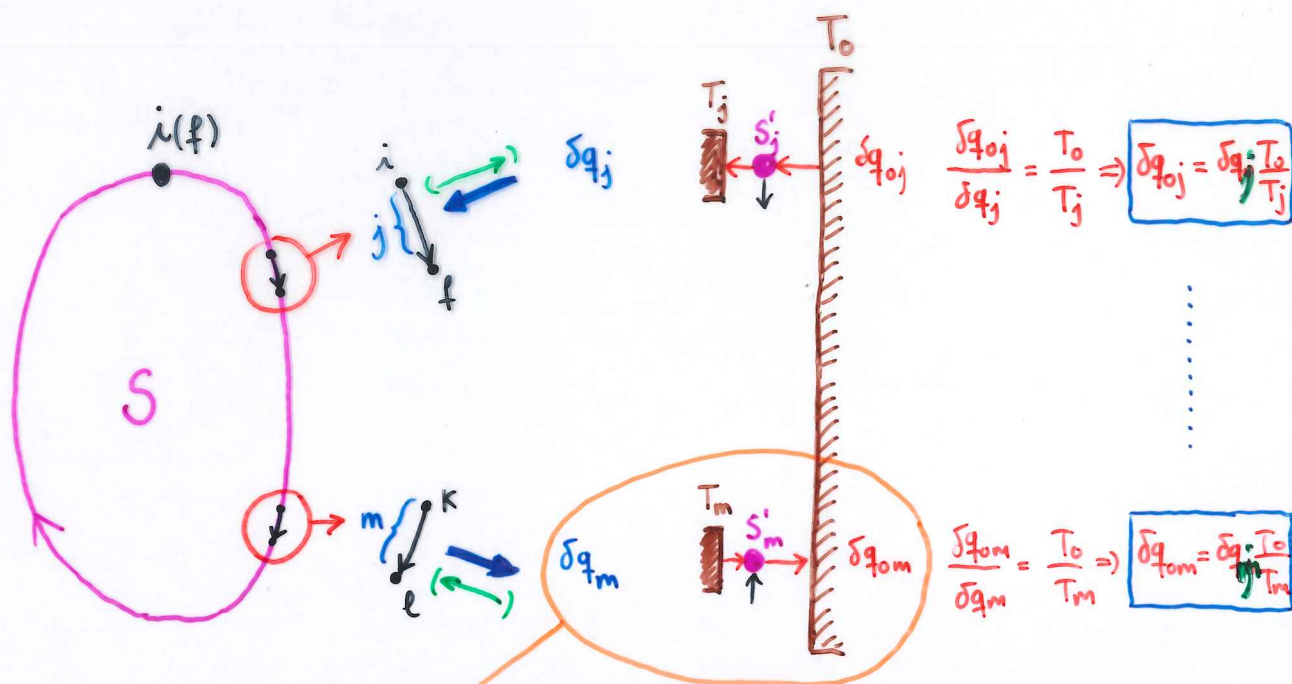 T₀
i(f)
i
j
f
δq_j
T_j
S'_j
δq_{0j}
δq_{0j}/δq_j = T₀/T_j ⇒ δq_{0j} = δq_j T₀/T_j
S
m
K
ℓ
δq_m
T_m
S'_m
δq_{0m}
δq_{0m}/δq_m = T₀/T_m ⇒ δq_{0m} = δq_m T₀/T_m